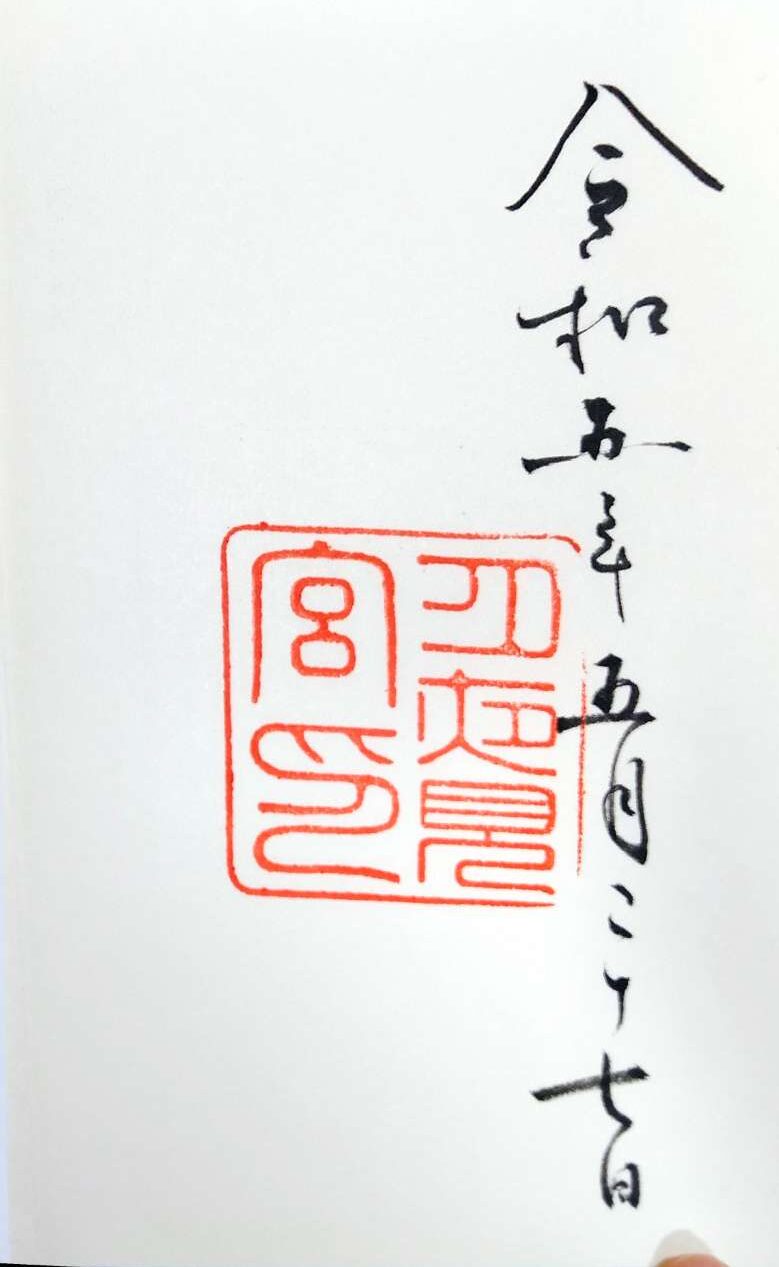 令和五年五月二十七日
月夜見
宮印